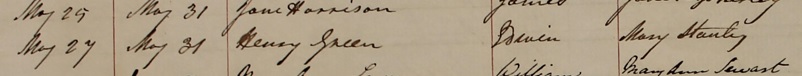 May 25 May 31 Jane Harrison James
May 27 May 31 Henry Green Edwin Mary Stanley
William Mary Ann Sewart